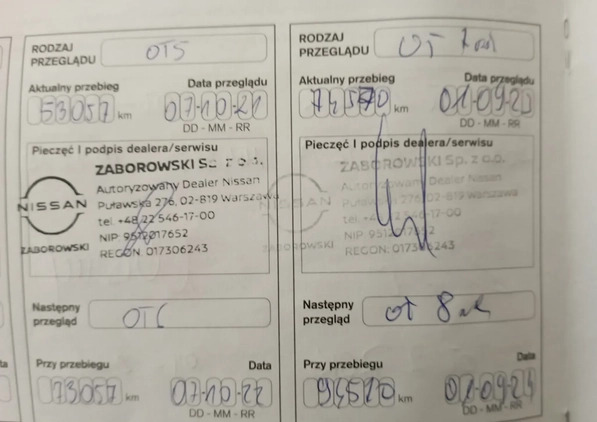 RODZAJ
PRZEGLĄDU
OT5
Aktualny przebieg
Data przeglądu
53057 km
07-10-21
DD - MM - RR
Pieczęć I podpis dealera/serwisu
ZABOROWSKI Sp. z o.o.
Autoryzowany Dealer Nissan
Puławska 276, 02-819 Warszawa
tel. +48 22 546-17-00
NIP 9512017652
REGON: 017306243
NISSAN
ZABOROWSKI
Następny
przegląd
OT6
Przy przebiegu
Data
73057 km
07-10-22
DD - MM - RR
RODZAJ
PRZEGLĄDU
OT
Aktualny przebieg
Data przeglądu
km
01-09-23
DD - MM - RR
Pieczęć I podpis dealera/serwisu
ZABOROWSKI Sp. z o.o.
Autoryzowany Dealer Nissan
Puławska 276, 02-819 Warszawa
tel. +48 22 546-17-00
NIP 9512017652
REGON: 017306243
NISSAN
ZABOROWSKI
Następny
przegląd
OT 8
Przy przebiegu
Data
94510 km
01-09-24
DD - MM - RR